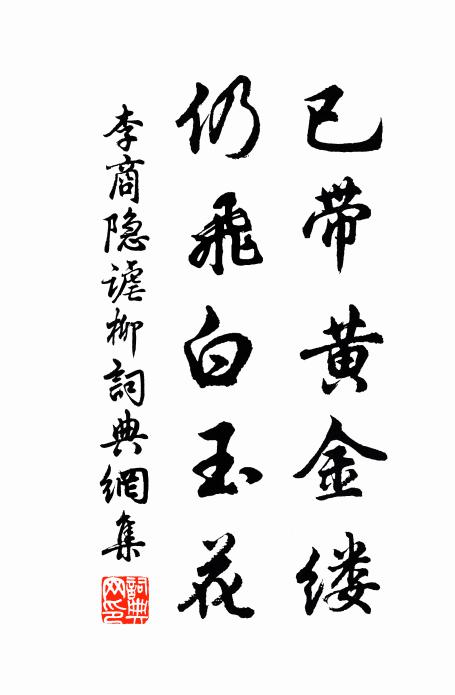 已带黄金缕
仍飞白玉花
李商隐谑柳詞典網集
詞典網印